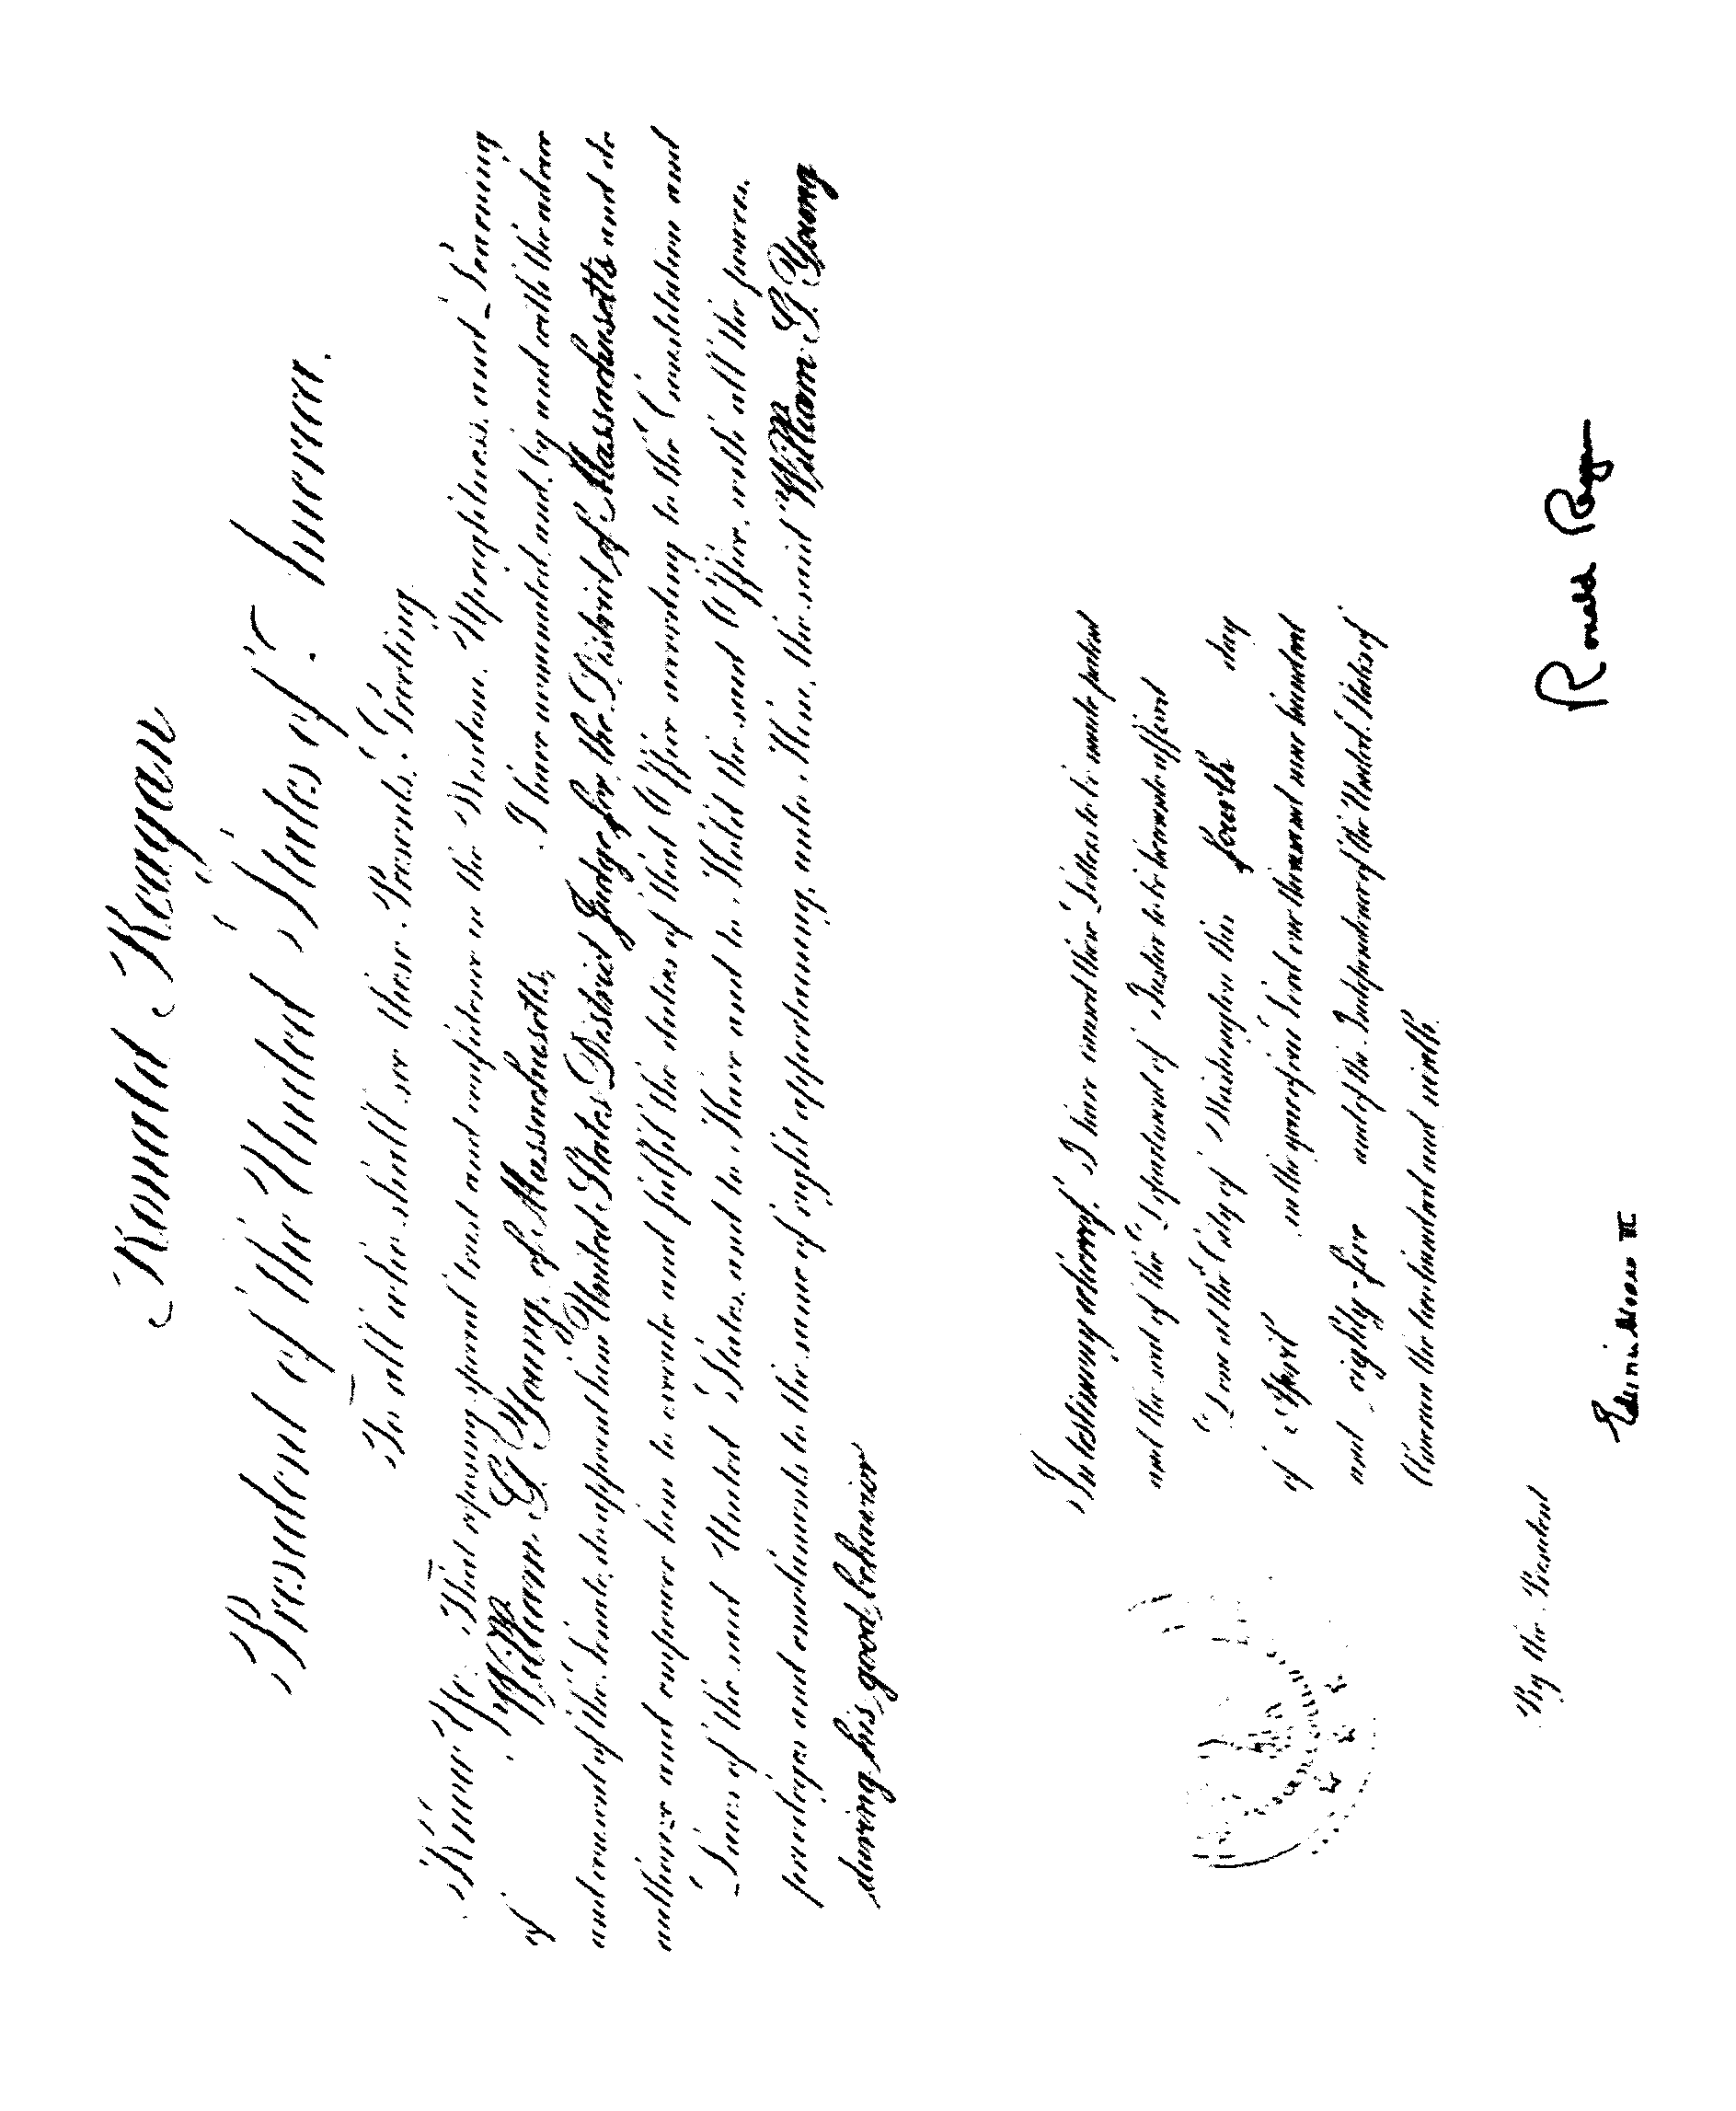 Ronald Reagan
President of the United States of America.
To all who shall see these Presents, Greeting
Know Ye, That reposing special trust and confidence in the Wisdom, Uprightness, and Learning
of William G. Young, of Massachusetts, I have nominated, and, by and with the advice
and consent of the Senate, do appoint him United States District Judge for the District of Massachusetts and do
authorize and empower him to execute and fulfil the duties of that Office according to the Constitution and
Laws of the said United States, and to Have and to Hold the said Office, with all the powers,
privileges and emoluments to the same of right appertaining, unto Him, the said William G. Young
during his good behavior
In testimony whereof, I have caused these Letters to be made patent
and the seal of the Department of Justice to be hereunto affixed
Done at the City of Washington this fourth day
of April in the year of our Lord one thousand nine hundred
and eighty-five and of the Independence of the United States of
America the two hundred and ninth.
By the President
Ronald Reagan
Edwin Meese III